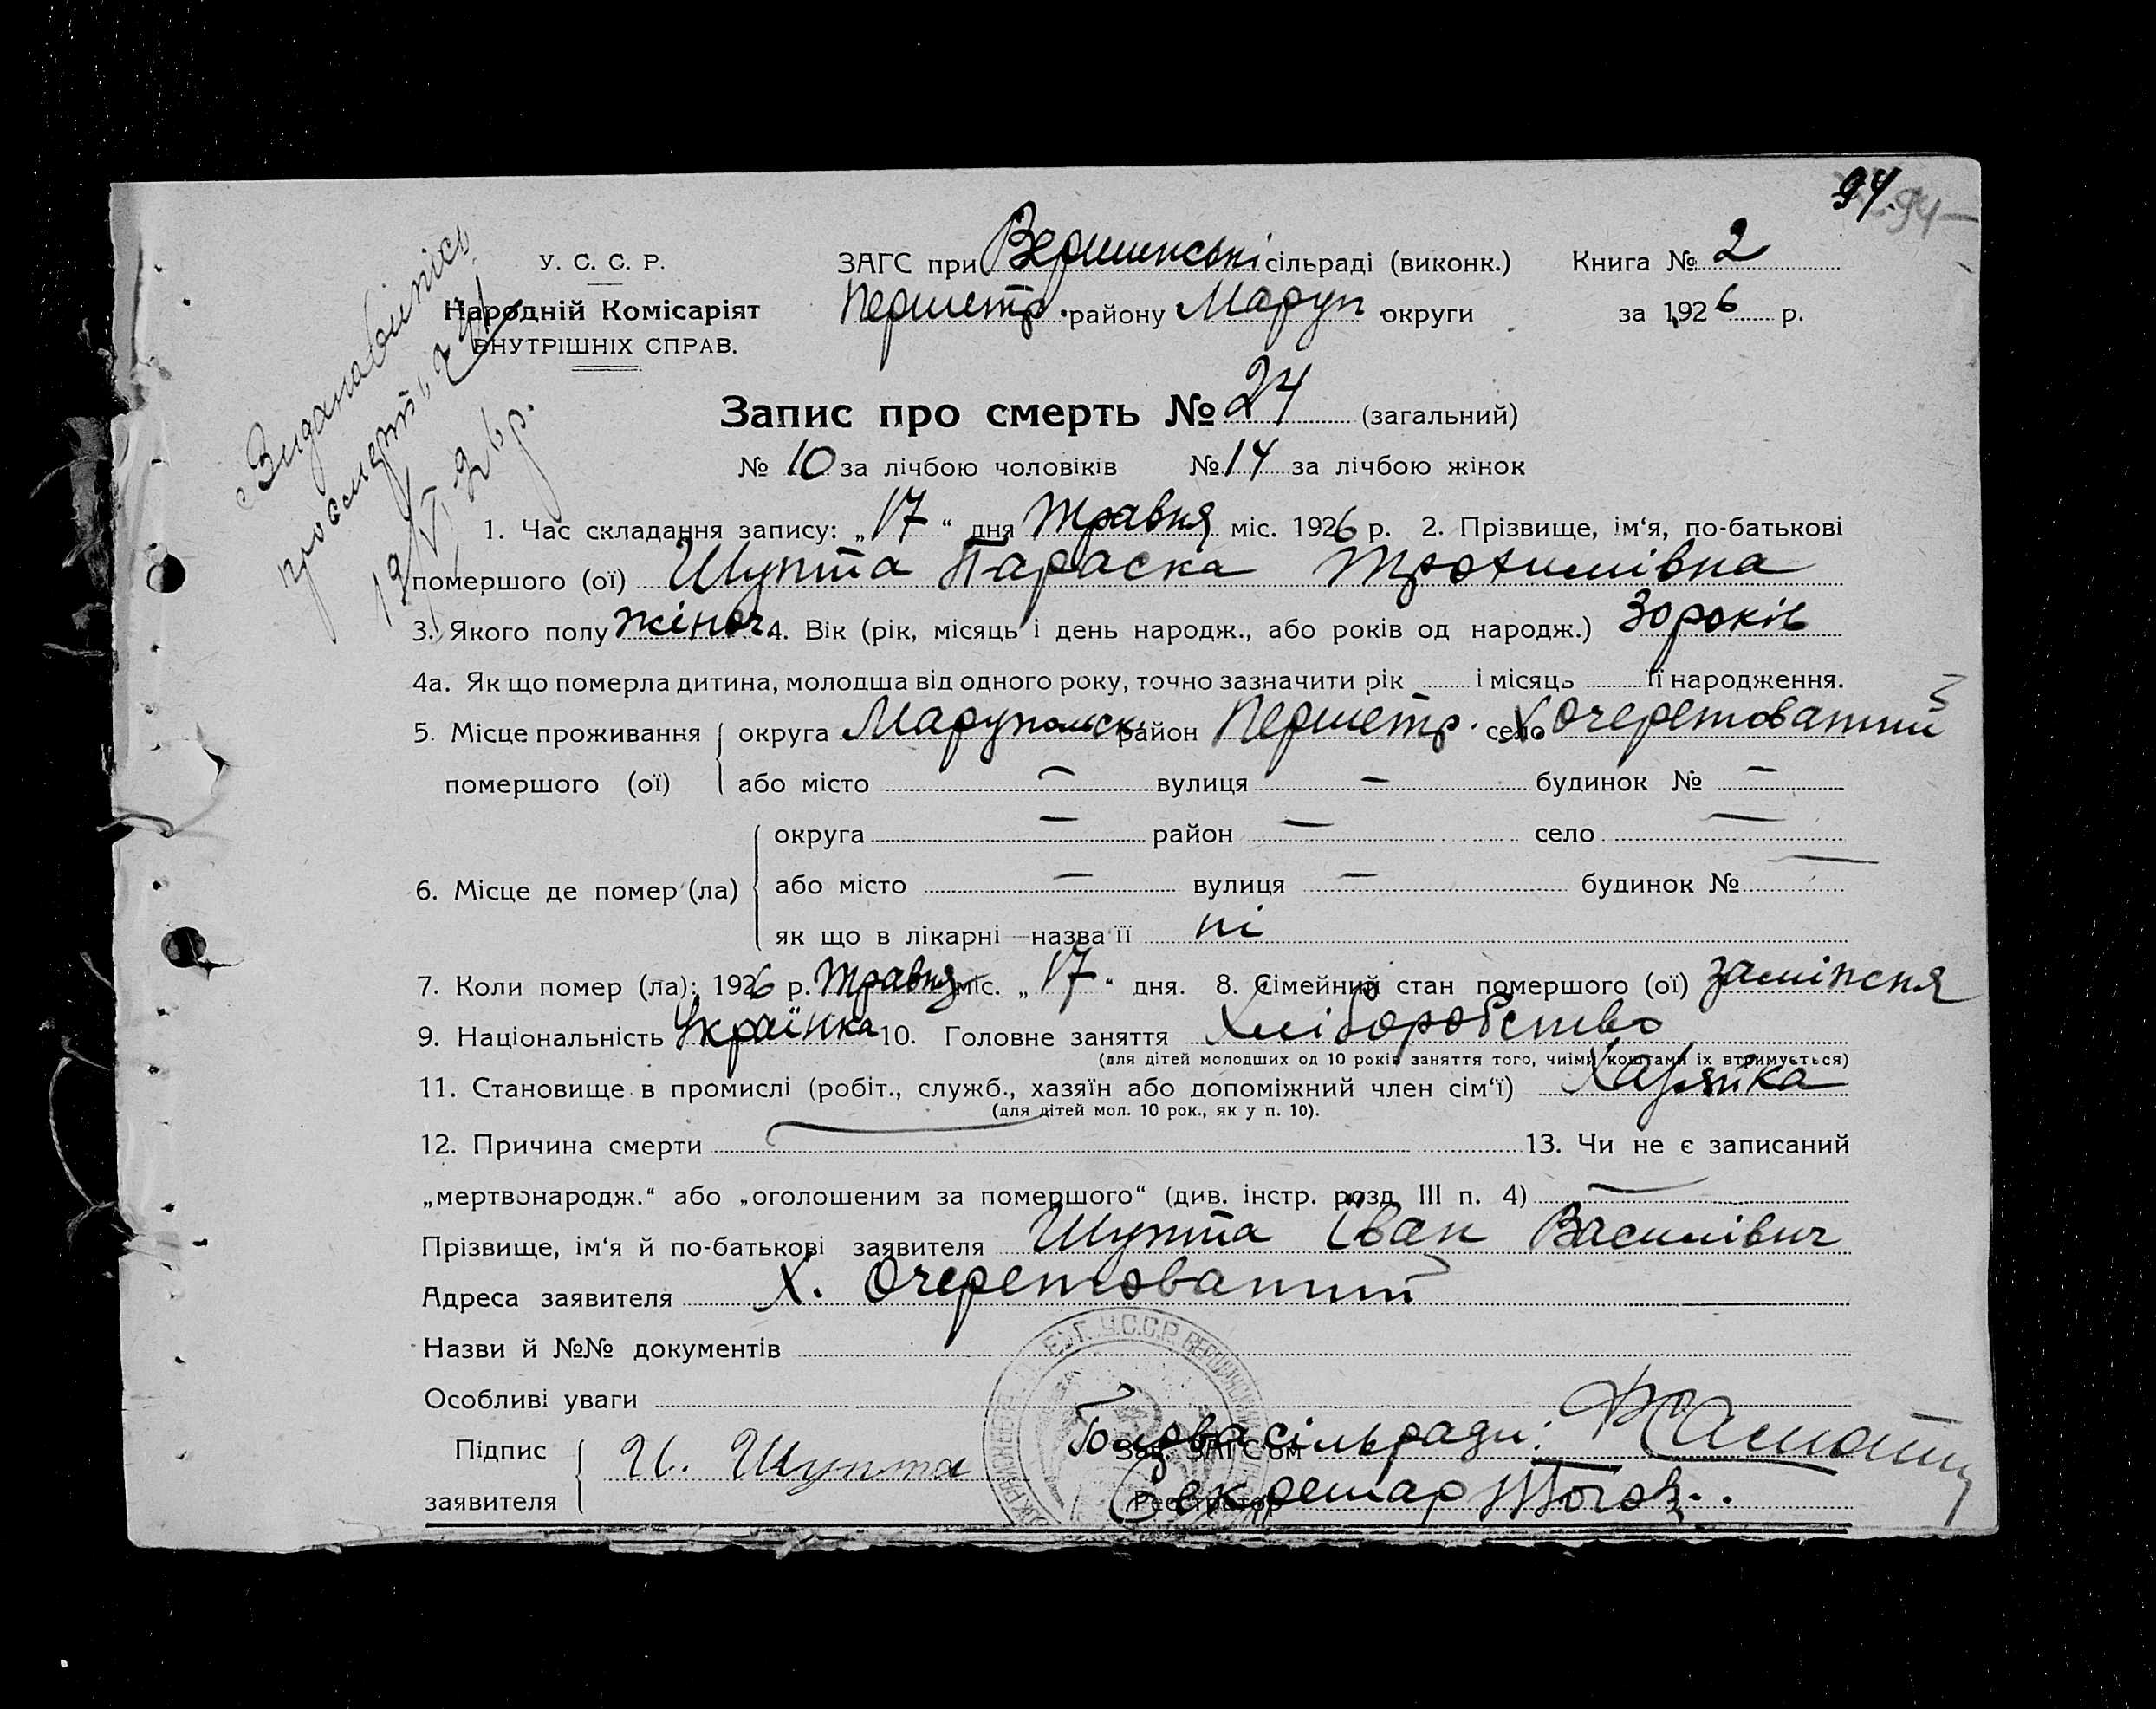 94. 94
У. С. С. Р.
Народній Комісаріят
ВНУТРІШНІХ СПРАВ.
ЗАГС при Вершинські сільраді (виконк.) Книга № 2
Першетр. району Маруп округи за 1926 р.
Видана випись
про смерть за № 24
19/VI 26 р.
Запис про смерть № 24 (загальний)
№ 10 за лічбою чоловіків № 14 за лічбою жінок
1. Час складання запису: „17“ дня Травня міс. 1926 р. 2. Прізвище, ім‘я, по-батькові
помершого (ої) Шупта Параска Трохимівна
3. Якого полу жіноч 4. Вік (рік, місяць і день народж., або років од народж.) 30 років
4а. Як що померла дитина, молодша від одного року, точно зазначити рік і місяць її народження.
5. Місце проживання округа Марупольск район Першетр. село Х Очеретоватий
помершого (ої) або місто — вулиця — будинок № —
округа — район — село —
6. Місце де помер (ла) або місто — вулиця — будинок № —
як що в лікарні—назва її ні
7. Коли помер (ла): 1926 р. Травня міс. „17“ дня. 8. Сімейний стан помершого (ої) заміжня
9. Національність Українка 10. Головне заняття Хліборобство
(для дітей молодших од 10 років заняття того, чиїми коштами їх втримується)
11. Становище в промислі (робіт., служб., хазяїн або допоміжний член сім‘ї) Хазяйка
(для дітей мол. 10 рок., як у п. 10).
12. Причина смерти — 13. Чи не є записаний
„мертвонародж.“ або „оголошеним за помершого“ (див. інстр. розд. III п. 4) —
Прізвище, ім‘я й по-батькові заявителя Шупта Іван Василівич
Адреса заявителя Х. Очеретоватий
Назви й №№ документів
Особливі уваги
Підпис
заявителя И. Шупта
Зав. ЗАГС‘ом Голова сільради:
Реєстратор Секретар
У.С.С.Р.